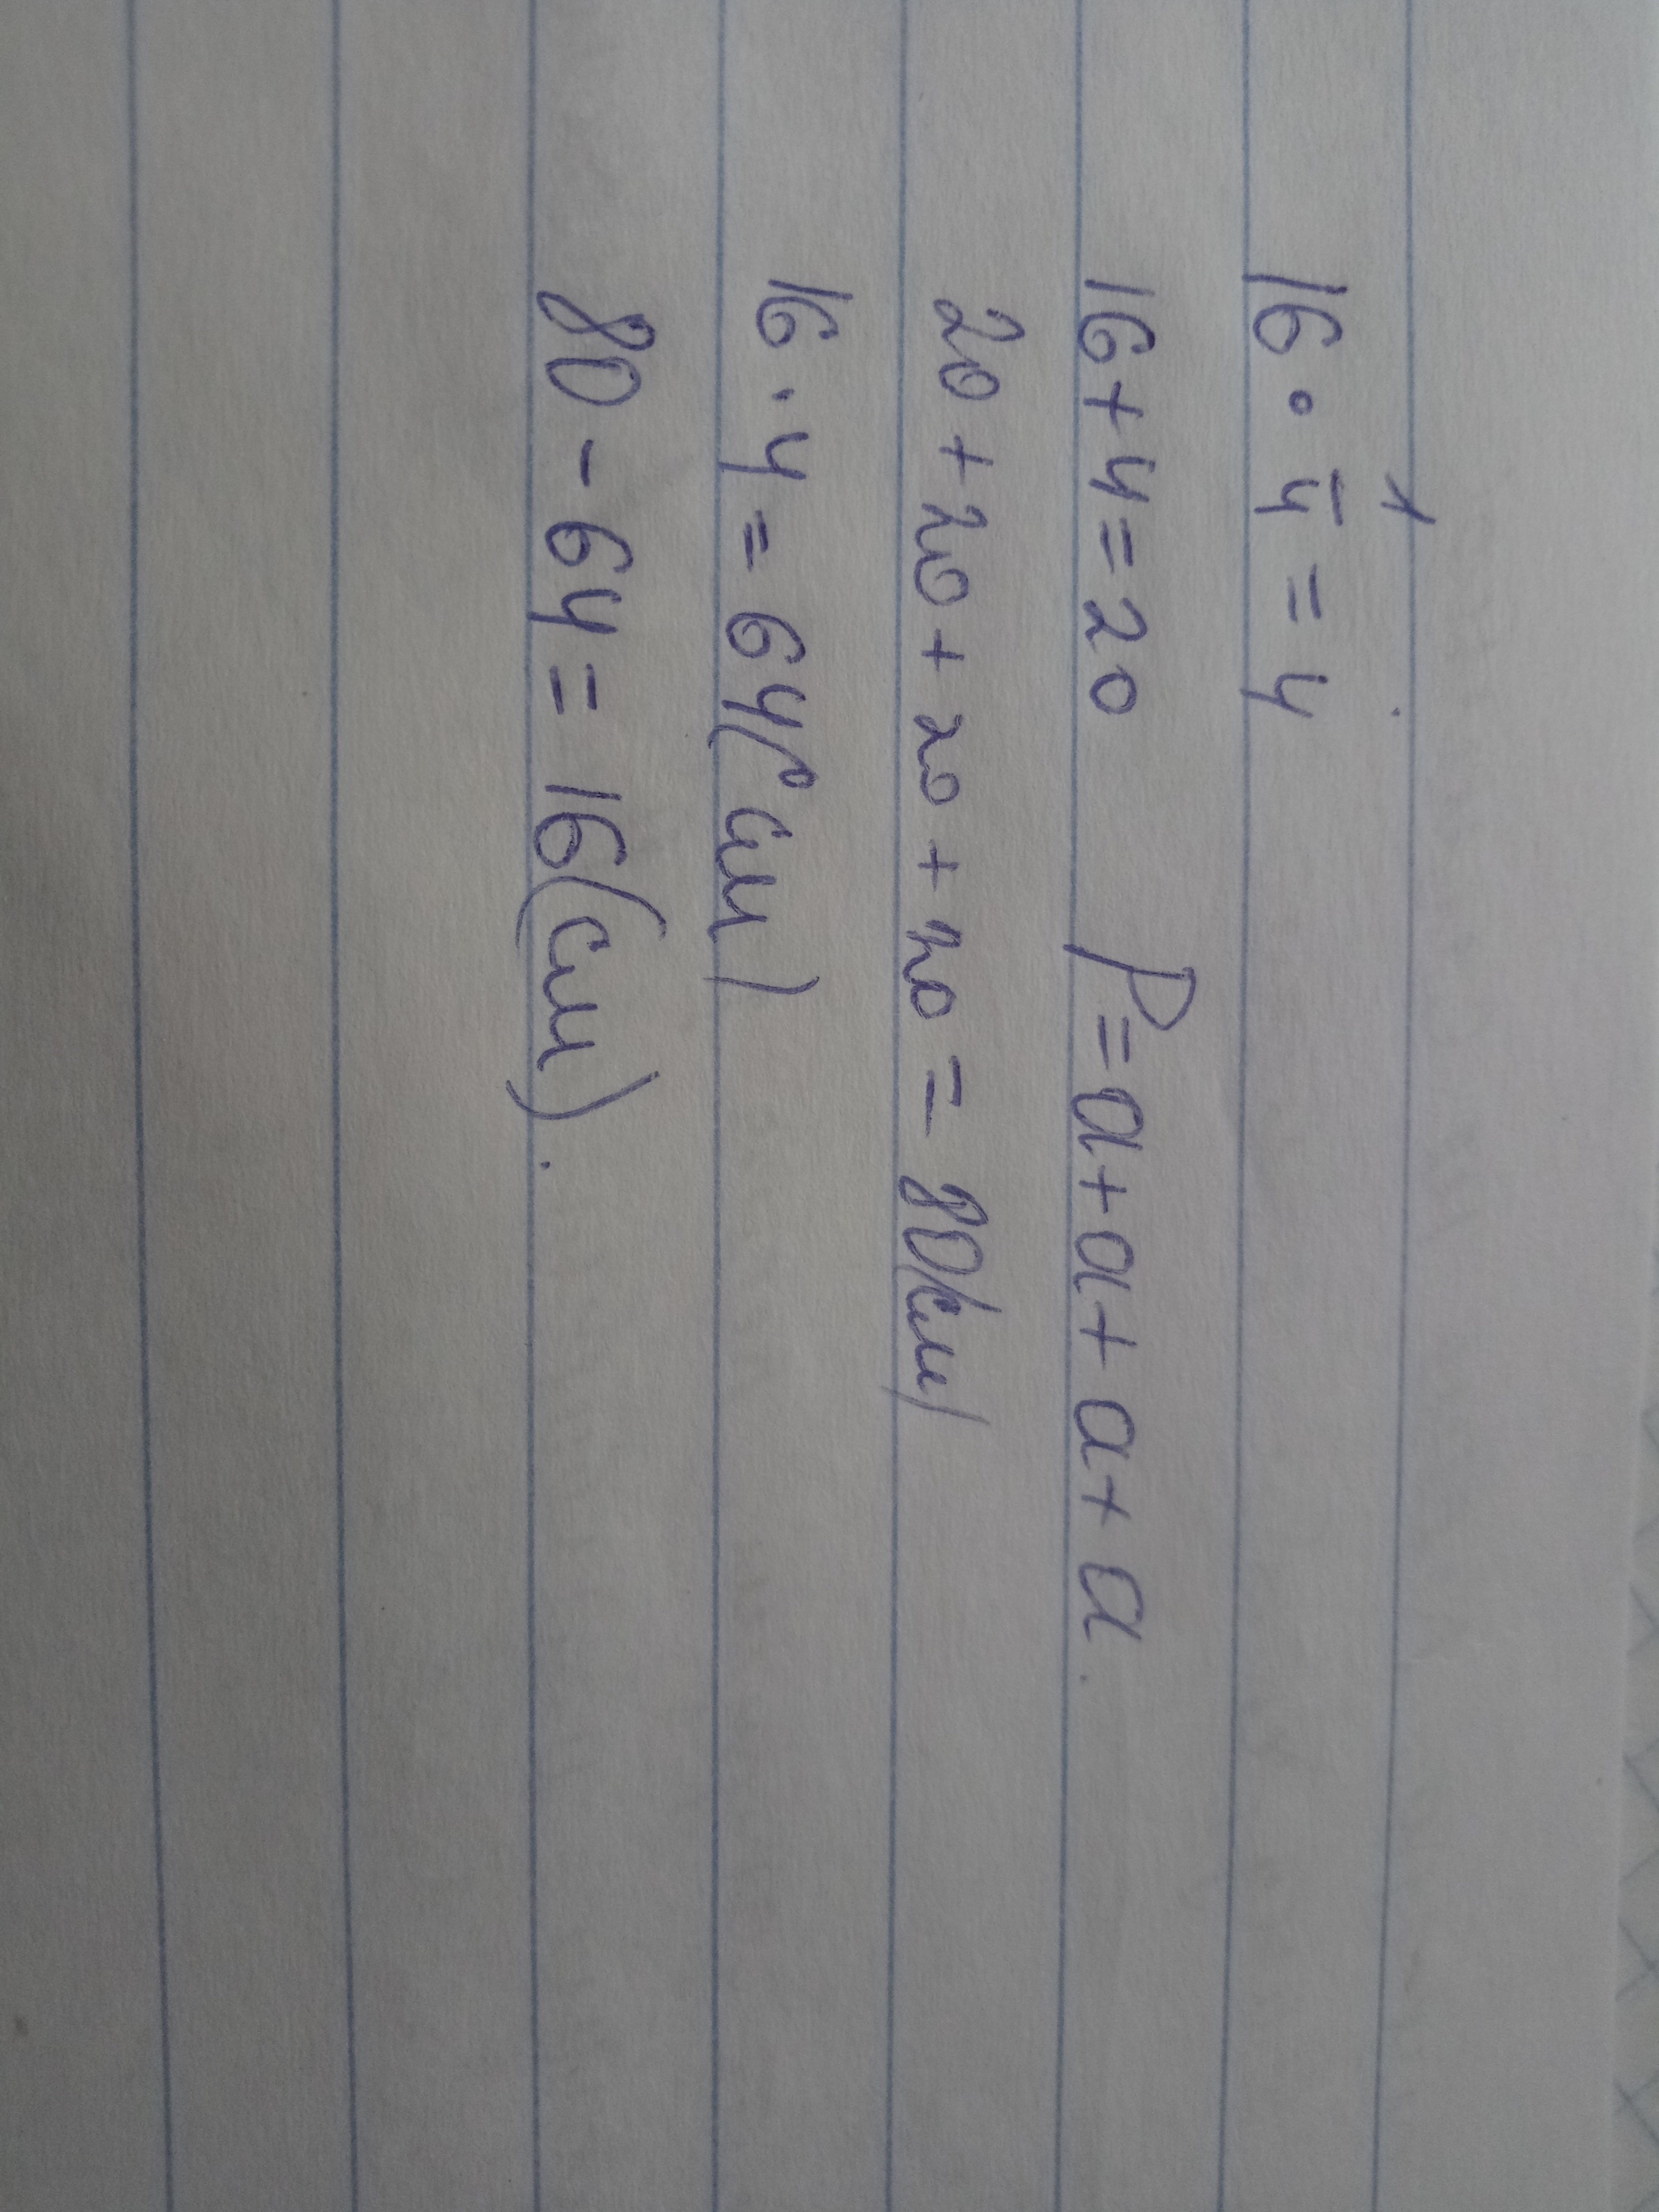 16 · 1/4 = 4
16 + 4 = 20 P = a + a + a + a.
20 + 20 + 20 + 20 = 80 (см)
16 · 4 = 64 (см)
80 - 64 = 16 (см).